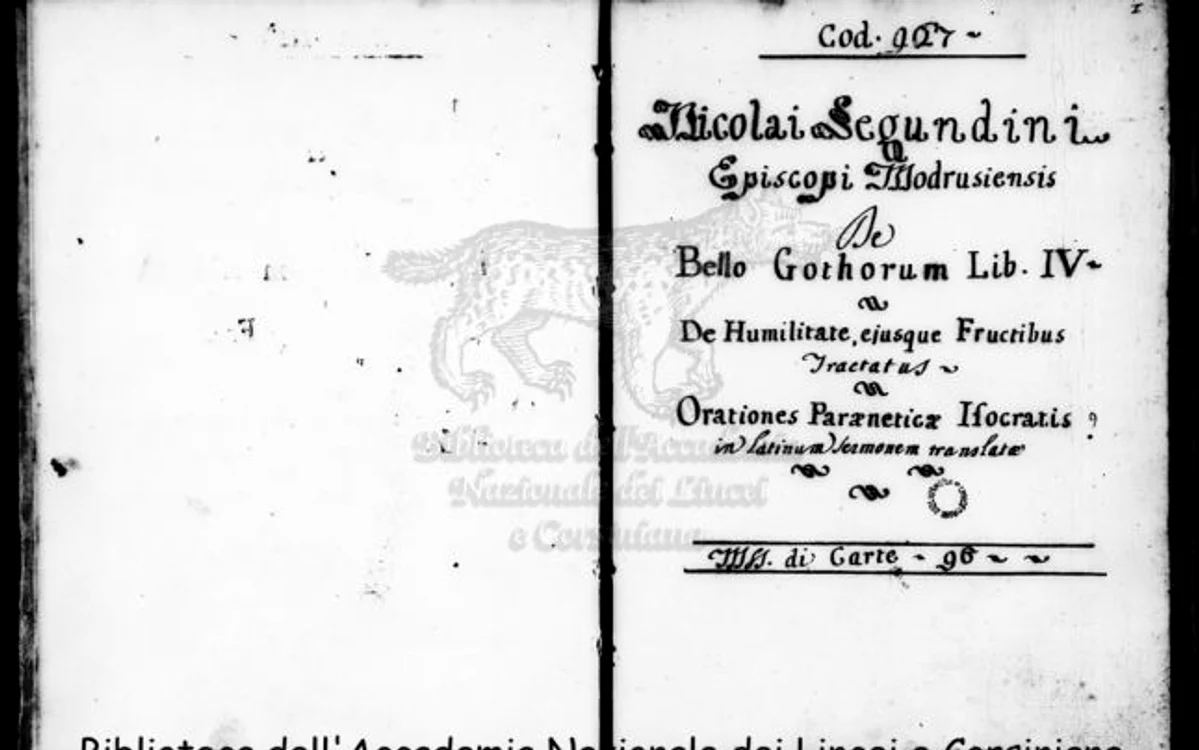 1
Cod. 927 ~
Nicolai Segundini
Episcopi Modrusiensis
De
Bello Gothorum Lib. IV~
De Humilitate, ejusque Fructibus
Tractatus ~
Orationes Paræneticæ Isocratis
in latinum sermonem translatæ
MSS. di Carte ~ 96 ~ ~
Biblioteca dell'Accademia
Nazionale dei Lincei
e Corsiniana
Biblioteca dell'Accademia Nazionale dei Lincei e Corsiniana